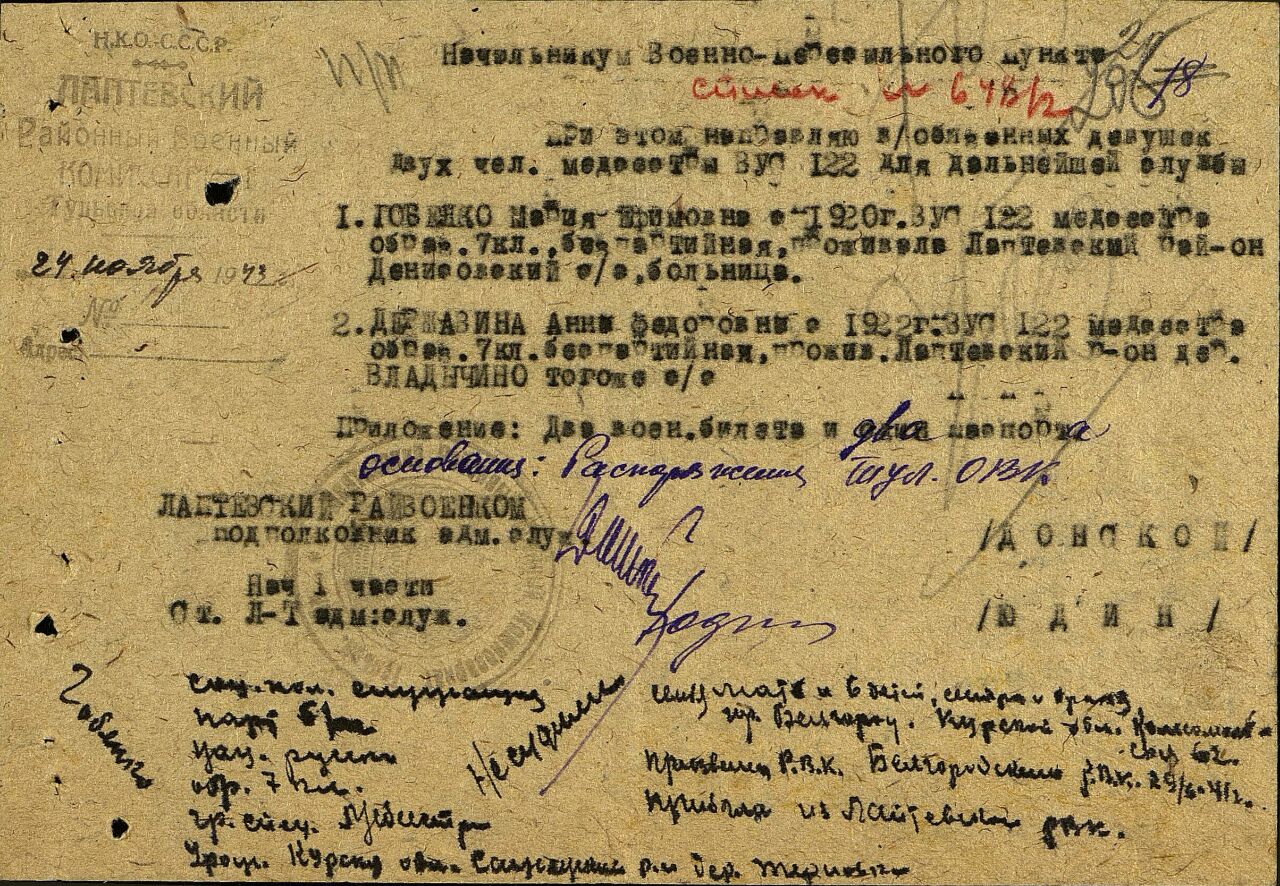 Н.К.О. С.С.С.Р.
ЛАПТЕВСКИЙ
Районный Военный
КОМИССАРИАТ
Тульской области
24 ноября 1942 г.
№
Адрес
Начальнику Военно-пересыльного пункта
список № 648/2
18
При этом направляю в/обязанных девушек
двух чел. медсестры ВУС 122 для дальнейшей службы
1. ГОБЕНКО Мария Ефимовна с 1920г. ВУС 122 медсестра
образ. 7кл., беспартийная, проживала Лаптевский рай-он
Денисовский с/с, больница.
2. ДЕРЖАВИНА Анна Федоровна с 1922г. ВУС 122 медсестра
образ. 7кл. беспартийная, прожив. Лаптевский р-он дер.
ВЛАДЫЧИНО тогоже с/с
Приложение: Два воен. билета и два паспорта
основания: Распоряжения Тул. ОВК
ЛАПТЕВСКИЙ РАЙВОЕНКОМ
подполковник адм. служ /ДОНСКОЙ/
Нач 1 части
Ст. Л-Т адм: служ. /ЮДИН/
Гобенко
соц. пол. служащая
парт б/п
нац. русск
обр. 7 кл.
гр. спец. Медсестр
Урож. Курск обл. дер.
Не судима
мать и сестра и брат
гор. Белгород. Курской обл.
62.
Призвана Р.В.К. Белгородским Р.В.К. 29/6-41г.
Прибыла из Лаптевский РВК.